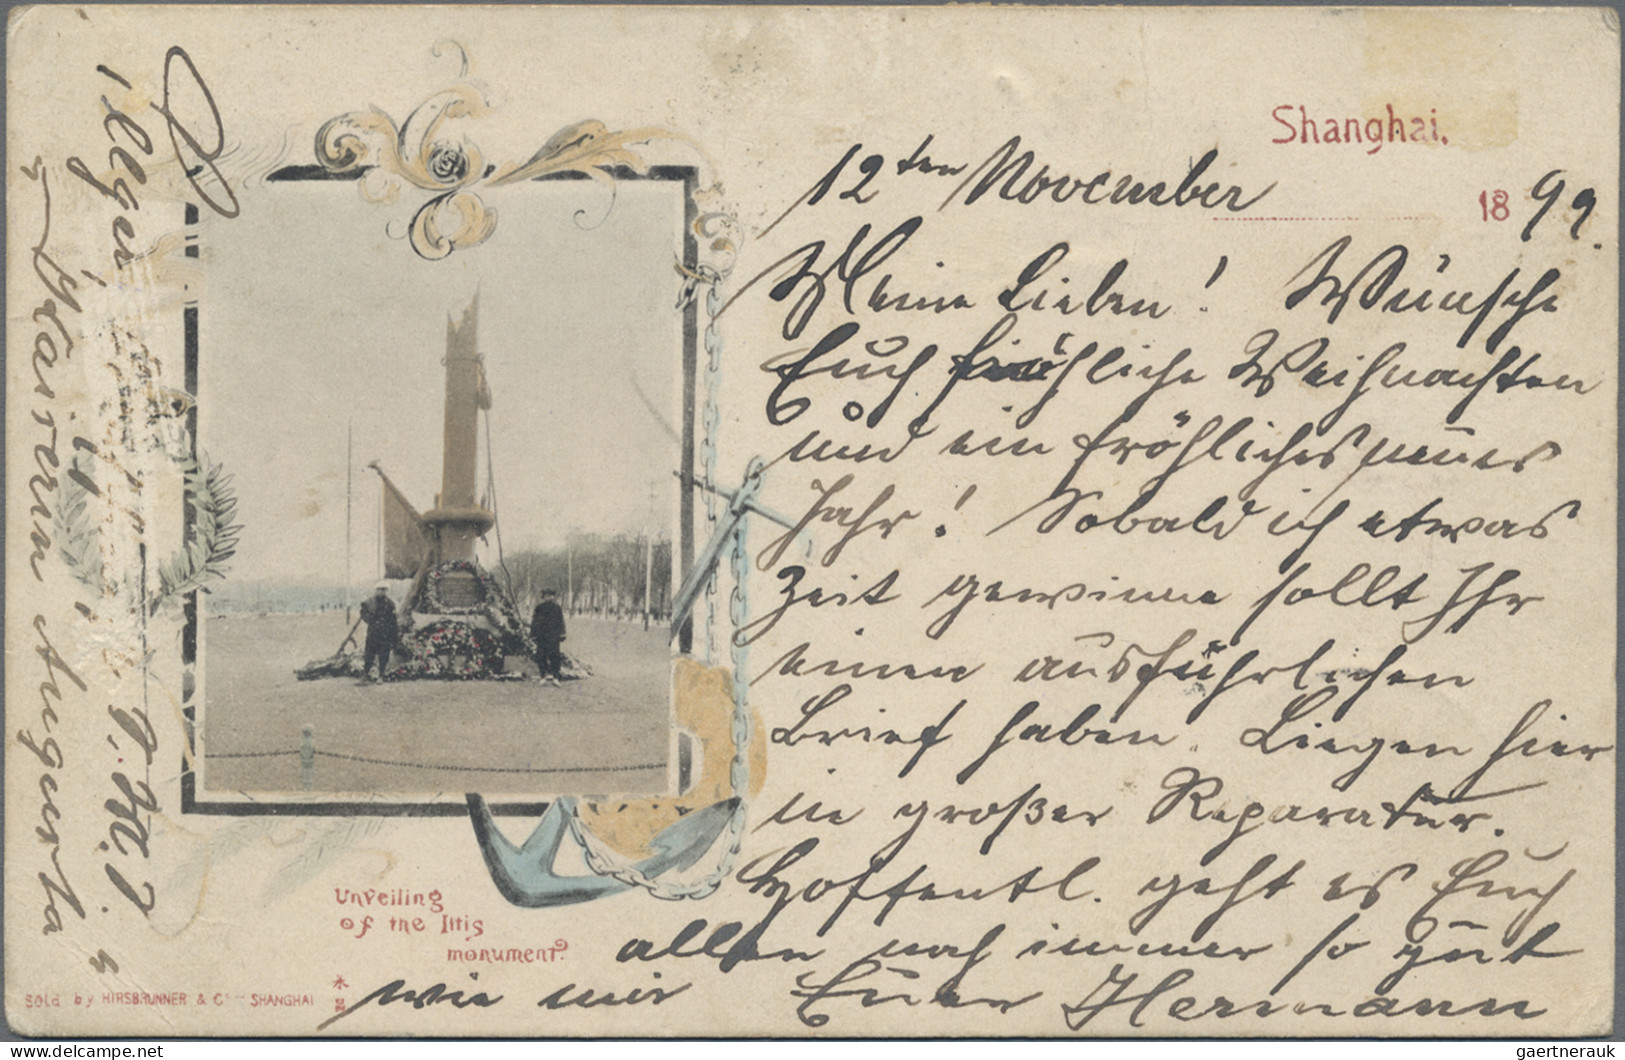 Shanghai.
12ten November 1899.
Meine Lieben! Wünsche
Euch fröhliche Weihnachten
und ein fröhliches neues
Jahr! Sobald ich etwas
Zeit gewinne sollt Ihr
einen ausführlichen
Brief haben. Liegen hier
in großer Reparatur.
Hoffentl. geht es Euch
allen noch immer so gut
wie mir Euer Hermann
Unveiling
of the Iltis
monument.
Sold by HIRSBRUNNER & Co - SHANGHAI
"Kaiserin Augusta"
delcampe.net
gaertnerauk